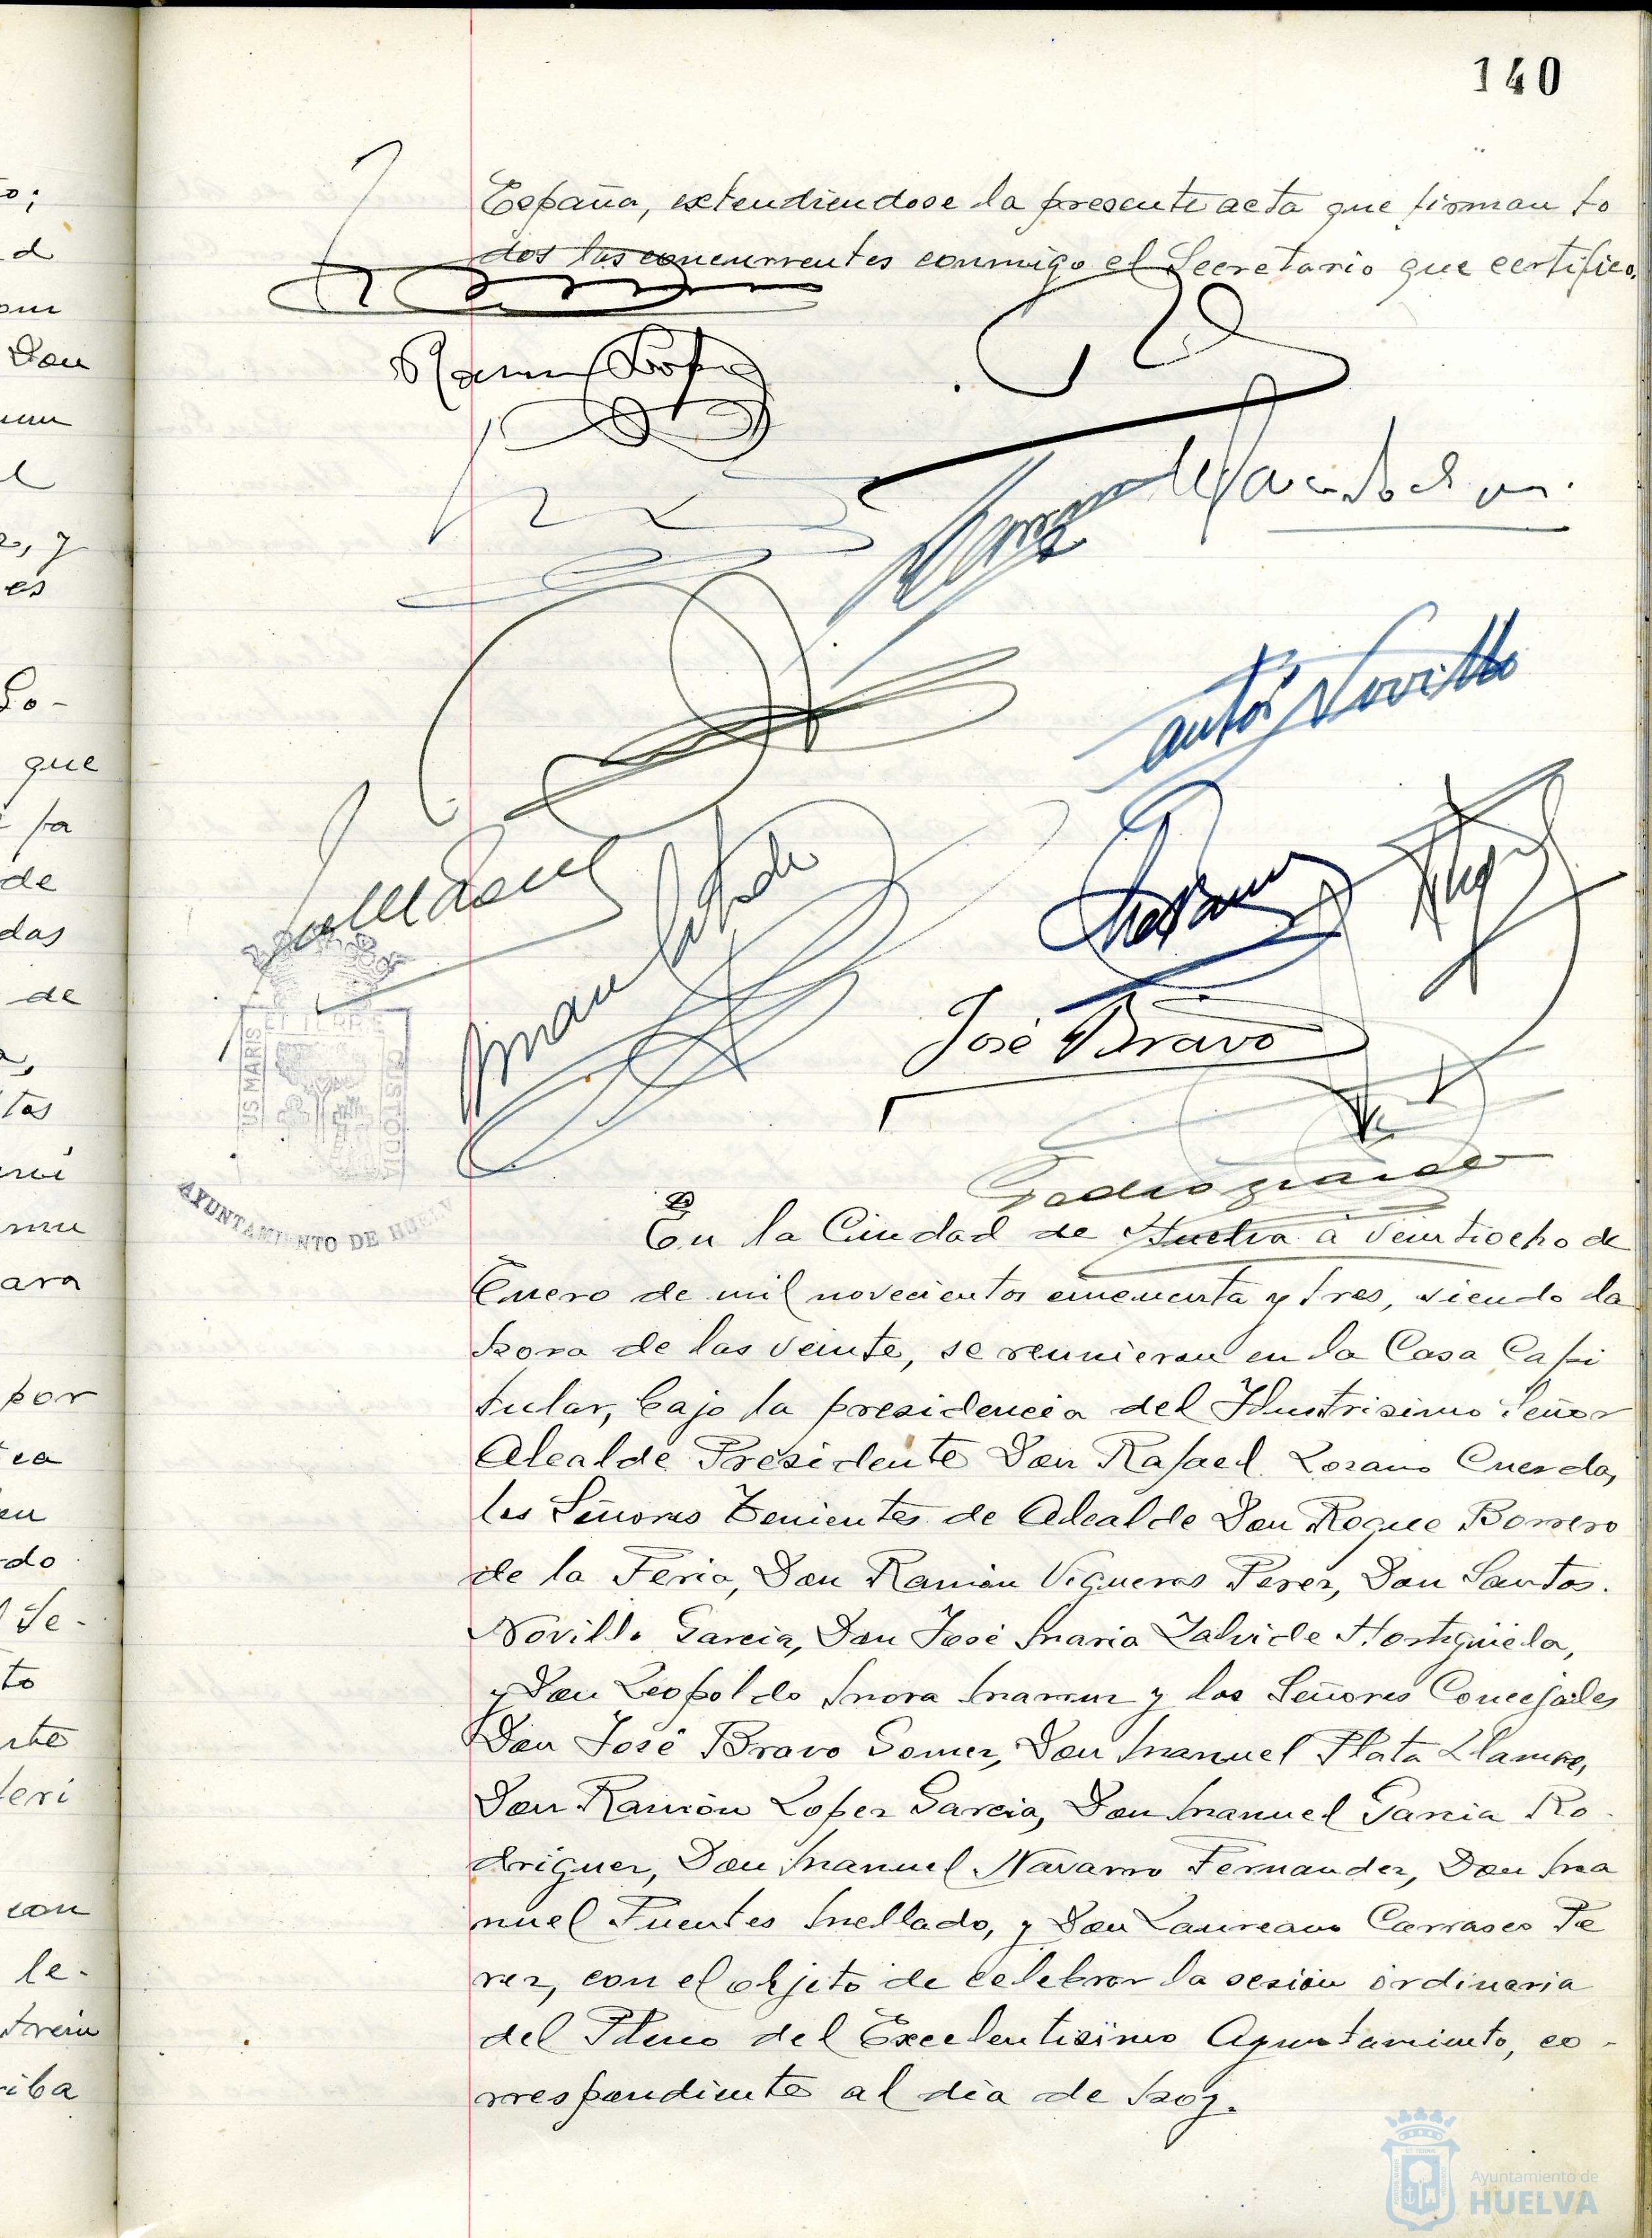 140
España, extendiendose la presente acta que firman to
dos los concurrentes conmigo el Secretario que certifico.
Ramon Lopez
Santos Novillo
Manuel
José Bravo
Pedro
US MARIS
ET TERRE
CUSTODIA
AYUNTAMIENTO DE HUELV
En la Ciudad de Huelva a veintiocho de
Enero de mil novecientos cincuenta y tres, siendo la
hora de las veinte, se reunieron en la Casa Capi
tular, bajo la presidencia del Ilustrisimo Señor
Alcalde Presidente Don Rafael Lozano Cuerda,
los Señores Tenientes de Alcalde Don Roque Borrero
de la Feria, Don Ramón Vigueras Perez, Don Santos
Novillo Garcia, Don José Maria Zalvide Hortigüela,
y Don Leopoldo Mora y los Señores Concejales
Don José Bravo Gomez, Don Manuel Plata
Don Ramón Lopez Garcia, Don Manuel Garcia Ro
driguez, Don Manuel Navarro Fernandez, Don Ma
nuel Fuentes Mellado, y Don Laureano Carrasco Pe
rez, con el objeto de celebrar la sesión ordinaria
del Pleno del Excelentisimo Ayuntamiento, co-
rrespondiente al día de hoy.
o;
d
Don
l
z, y
es
Lo-
que
fa
de
das
de
a,
tas
ara
por
ca
en
do
Se-
to
rte
teri
con
le-
iba
Ayuntamiento de
HUELVA